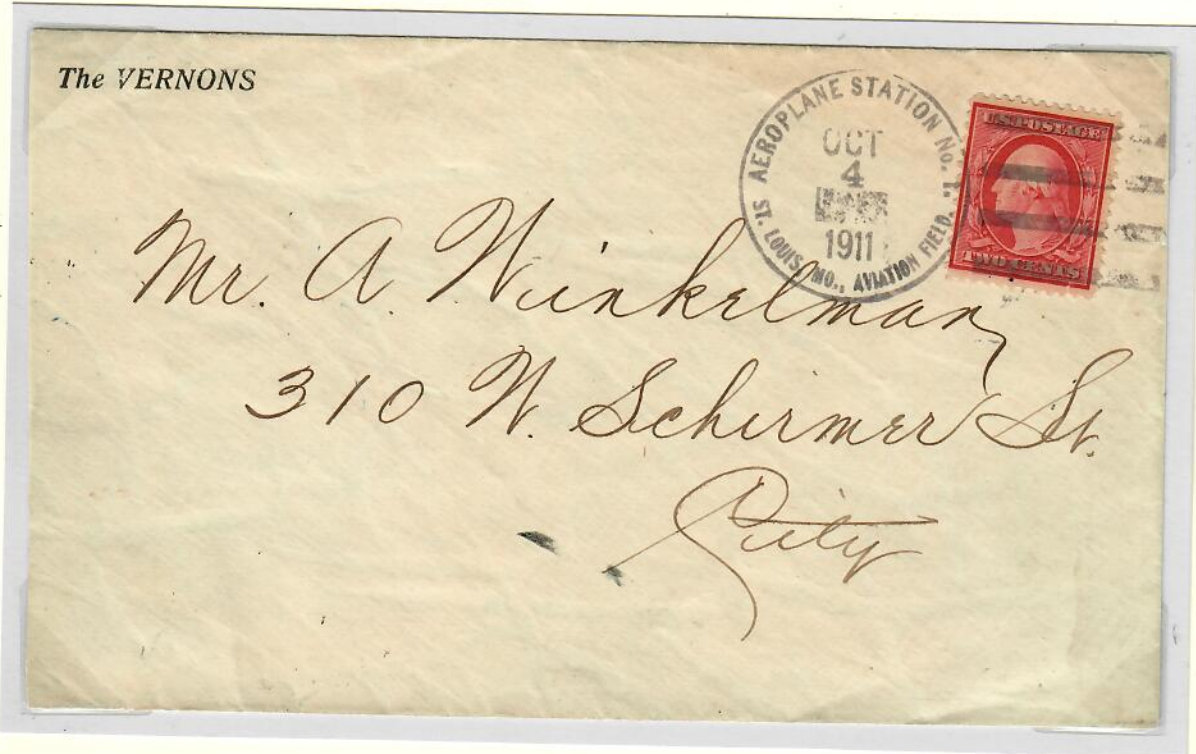 The VERNONS
AEROPLANE STATION No. 1.
OCT
4
1911
ST. LOUIS, MO., AVIATION FIELD.
U.S. POSTAGE
TWO CENTS
Mr. A. Winkelman,
310 N. Schirmer St.
City